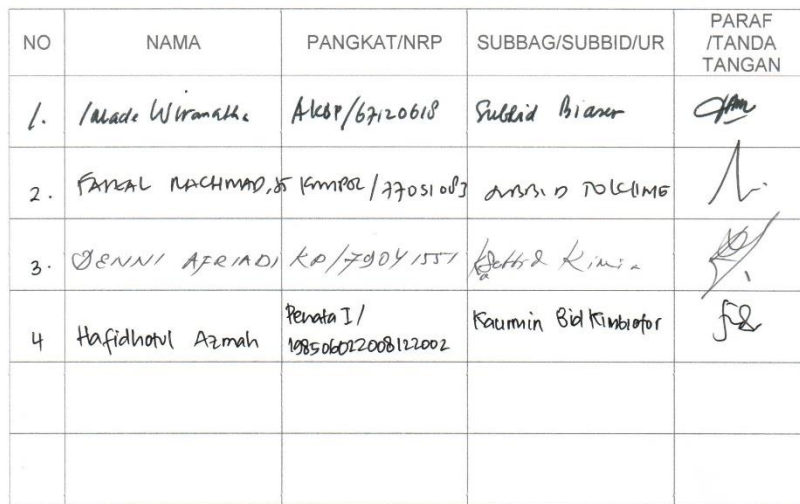 NO NAMA PANGKAT/NRP SUBBAG/SUBBID/UR PARAF
/TANDA
TANGAN
1. I Made Wiranatha AKBP/67120618 Subbid Biaser
2. FAIZAL RACHMAD, ST KOMPOL/77051083 SUBBID TOKLING
3. DENNI AFRIADI KP/79041551 Kimia
4 Hafidhotul Azmah Penata I/
198506022008122002 Kaurmin Bid Kimbiofor